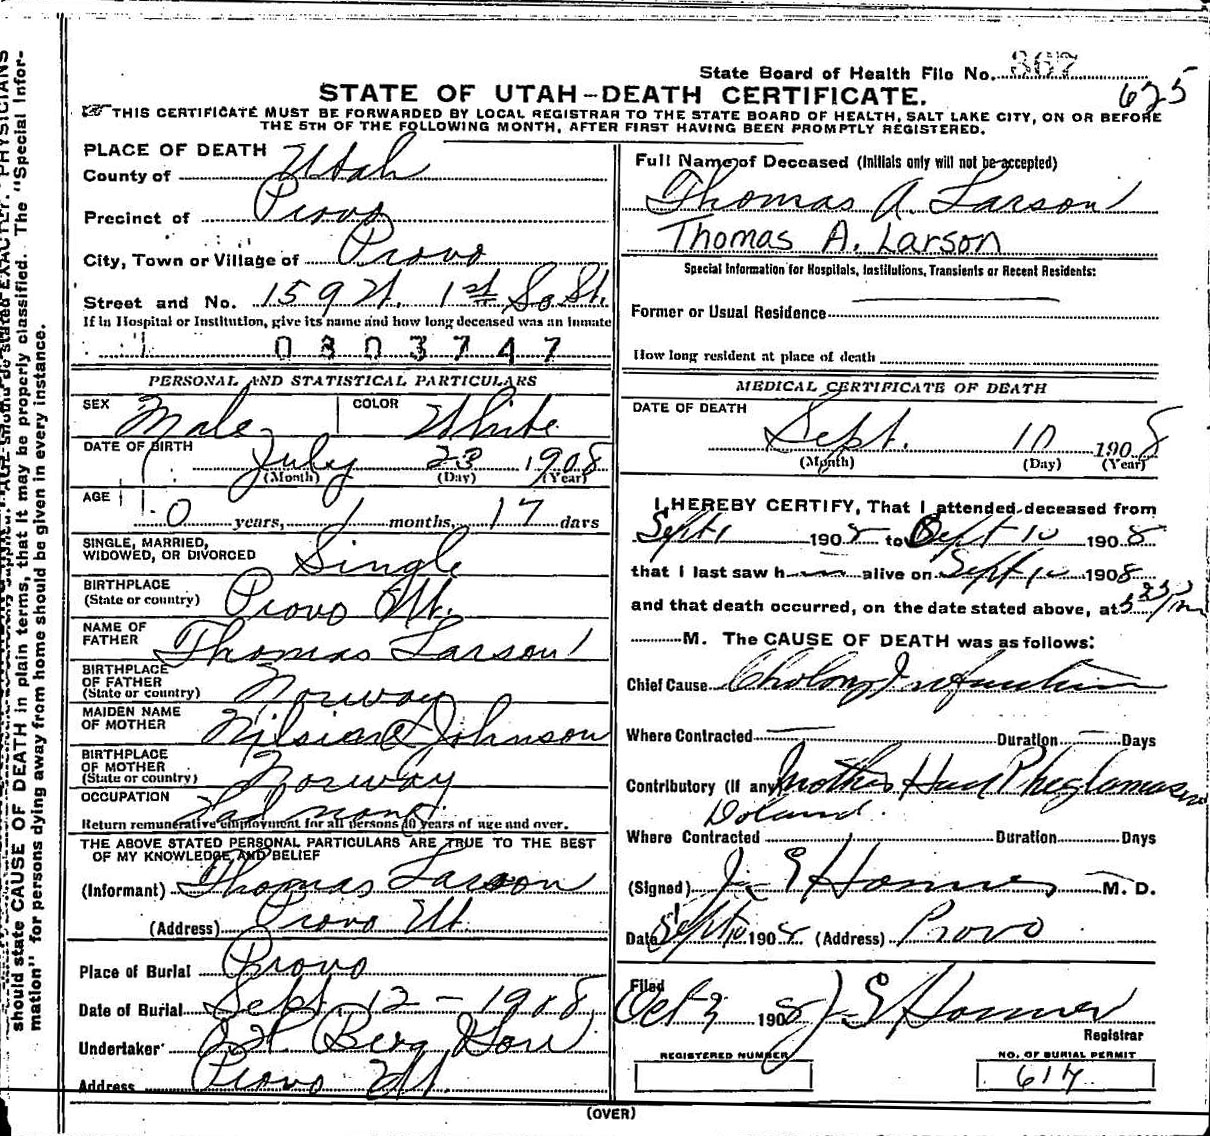 should state CAUSE OF DEATH in plain terms, that it may be properly classified. The "Special Infor-
mation" for persons dying away from home should be given in every instance.
State Board of Health File No. 367
625
STATE OF UTAH—DEATH CERTIFICATE.
THIS CERTIFICATE MUST BE FORWARDED BY LOCAL REGISTRAR TO THE STATE BOARD OF HEALTH, SALT LAKE CITY, ON OR BEFORE
THE 5TH OF THE FOLLOWING MONTH, AFTER FIRST HAVING BEEN PROMPTLY REGISTERED.
PLACE OF DEATH
County of Utah
Precinct of Provo
City, Town or Village of Provo
Street and No. 159 W. 1st So St.
If in Hospital or Institution, give its name and how long deceased was an inmate
0303747
PERSONAL AND STATISTICAL PARTICULARS
SEX Male COLOR White
DATE OF BIRTH July 23 1908
(Month) (Day) (Year)
AGE 0 years, 1 months, 17 days
SINGLE, MARRIED,
WIDOWED, OR DIVORCED Single
BIRTHPLACE
(State or country) Provo Ut.
NAME OF
FATHER Thomas Larson
BIRTHPLACE
OF FATHER
(State or country) Norway
MAIDEN NAME
OF MOTHER Johnson
BIRTHPLACE
OF MOTHER
(State or country) Norway
OCCUPATION Had none
Return remunerative employment for all persons 10 years of age and over.
THE ABOVE STATED PERSONAL PARTICULARS ARE TRUE TO THE BEST
OF MY KNOWLEDGE AND BELIEF
(Informant) Thomas Larson
(Address) Provo Ut.
Place of Burial Provo
Date of Burial Sept. 12 - 1908
Undertaker Berg
Address Provo Ut.
Full Name of Deceased (Initials only will not be accepted)
Thomas A. Larson
Thomas A. Larson
Special Information for Hospitals, Institutions, Transients or Recent Residents:
Former or Usual Residence
How long resident at place of death
MEDICAL CERTIFICATE OF DEATH
DATE OF DEATH
Sept. 10 1908
(Month) (Day) (Year)
I HEREBY CERTIFY, That I attended deceased from
Sept 1 1908 to Sept 10 1908
that I last saw h alive on Sept 10 1908
and that death occurred, on the date stated above, at
M. The CAUSE OF DEATH was as follows:
Chief Cause
Where Contracted Duration Days
Contributory (If any) Mother Had
Where Contracted Duration Days
(Signed) M. D.
Date Sept 10 1908 (Address) Provo
Filed
Oct 2 1908
Registrar
REGISTERED NUMBER
NO. OF BURIAL PERMIT
617
(OVER)